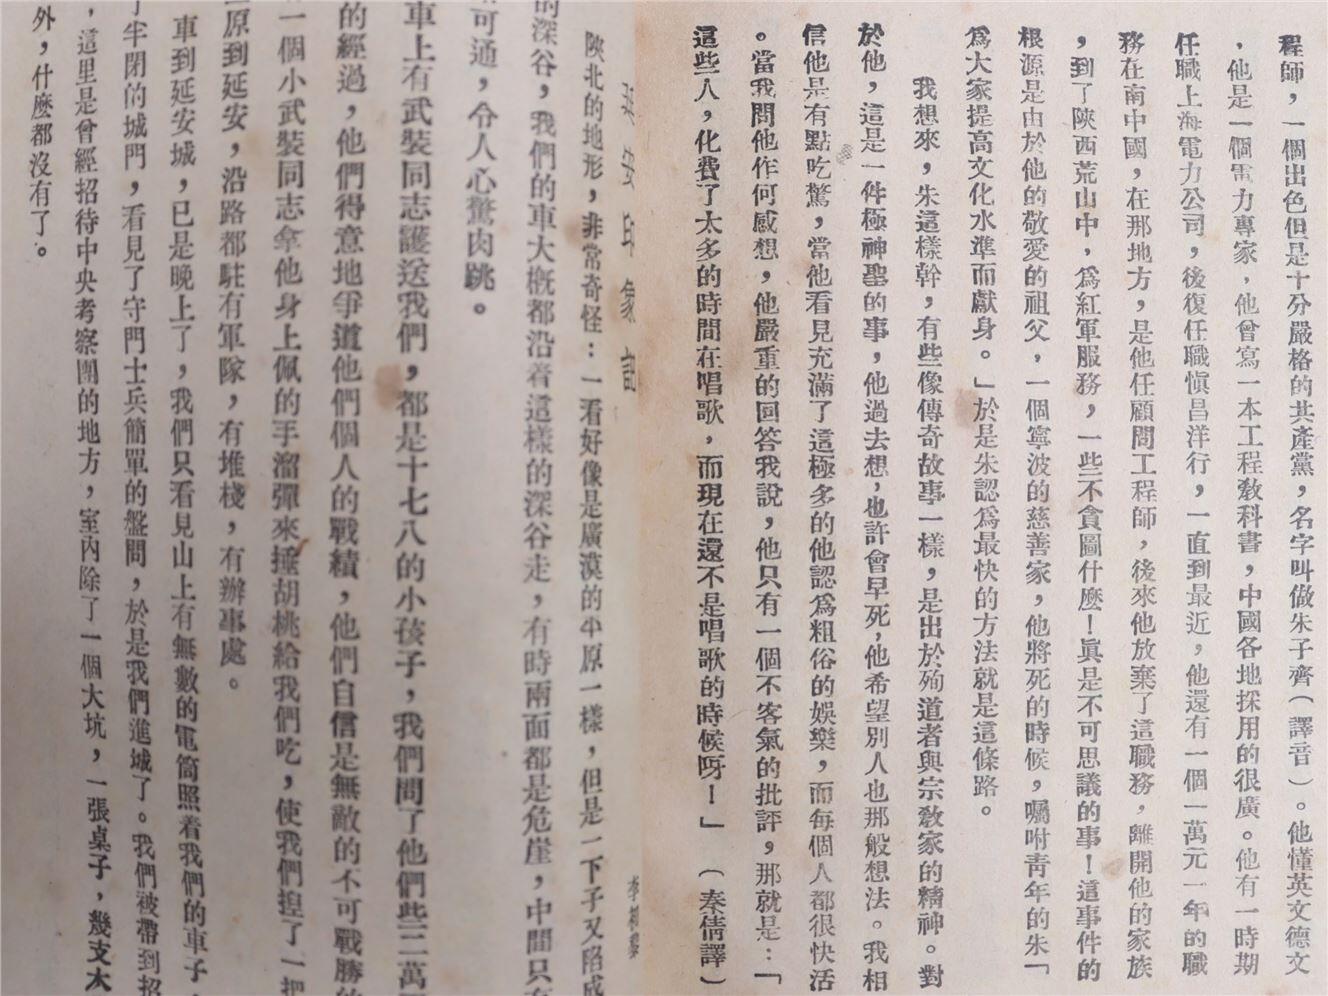 程師，一個出色但是十分嚴格的共產黨，名字叫做朱子齊（譯音）。他懂英文德文
，他是一個電力專家，他曾寫一本工程教科書，中國各地採用的很廣。他有一時期
任職上海電力公司，後復任職愼昌洋行，一直到最近，他還有一個一萬元一年的職
務在南中國，在那地方，是他任顧問工程師，後來他放棄了這職務，離開他的家族
，到了陝西荒山中，爲紅軍服務，一些不貪圖什麼！眞是不可思議的事！這事件的
根源是由於他的敬愛的祖父，一個寧波的慈善家，他將死的時候，囑咐靑年的朱「
爲大家提高文化水準而獻身。」於是朱認爲最快的方法就是這條路。
我想來，朱這樣幹，有些像傳奇故事一樣，是出於殉道者與宗教家的精神。對
於他，這是一件極神聖的事，他過去想，也許會早死，他希望別人也那般想法。我相
信他是有點吃驚，當他看見充滿了這極多的他認爲粗俗的娛樂，而每個人都很快活
。當我問他作何感想，他嚴重的回答我說，他只有一個不客氣的批評，那就是：「
這些人，化費了太多的時間在唱歌，而現在還不是唱歌的時候呀！」（秦倩譯）
延安印象記
陝北的地形，非常奇怪：一看好像是廣漠的平原一樣，但是一下子又陷成
的深谷，我們的車大槪都沿着這樣的深谷走，有時兩面都是危崖，中間只有
可通，令人心驚肉跳。
車上有武裝同志護送我們，都是十七八的小孩子，我們問了他們些二萬
的經過，他們得意地爭道他們個人的戰績，他們自信是無敵的不可戰勝的
一個小武裝同志拿他身上佩的手溜彈來捶胡桃給我們吃，使我們揑了一把
原到延安，沿路都駐有軍隊，有堆棧，有辦事處。
車到延安城，已是晚上了，我們只看見山上有無數的電筒照着我們的車子，
半閉的城門，看見了守門士兵簡單的盤問，於是我們進城了。我們被帶到招
，這里是曾經招待中央考察團的地方，室內除了一個大坑，一張桌子，幾支木
外，什麼都沒有了。